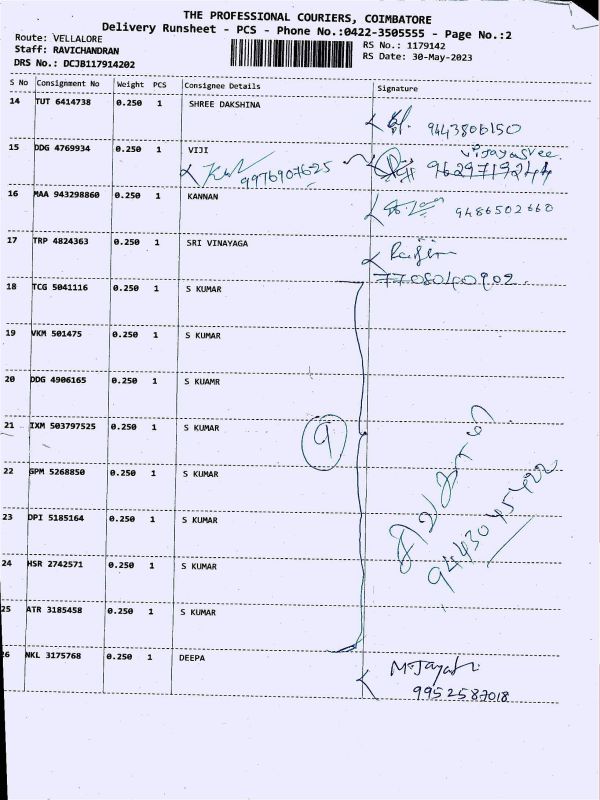 THE PROFESSIONAL COURIERS, COIMBATORE
Delivery Runsheet - PCS - Phone No.:0422-3505555 - Page No.:2
Route: VELLALORE
Staff: RAVICHANDRAN
DRS No.: DCJB117914202
RS No.: 1179142
RS Date: 30-May-2023
S No Consignment No Weight PCS Consignee Details Signature
14 TUT 6414738 0.250 1 SHREE DAKSHINA
9443806150
15 DDG 4769934 0.250 1 VIJI
Vijayasree
9976907625
9629719244
16 MAA 943298860 0.250 1 KANNAN
9486502660
17 TRP 4824363 0.250 1 SRI VINAYAGA
7708040902
18 TCG 5041116 0.250 1 S KUMAR
19 VKM 501475 0.250 1 S KUMAR
20 DDG 4906165 0.250 1 S KUAMR
21 IXM 503797525 0.250 1 S KUMAR
9
22 GPM 5268850 0.250 1 S KUMAR
9443045422
23 DPI 5185164 0.250 1 S KUMAR
24 HSR 2742571 0.250 1 S KUMAR
25 ATR 3185458 0.250 1 S KUMAR
26 NKL 3175768 0.250 1 DEEPA
9952587018